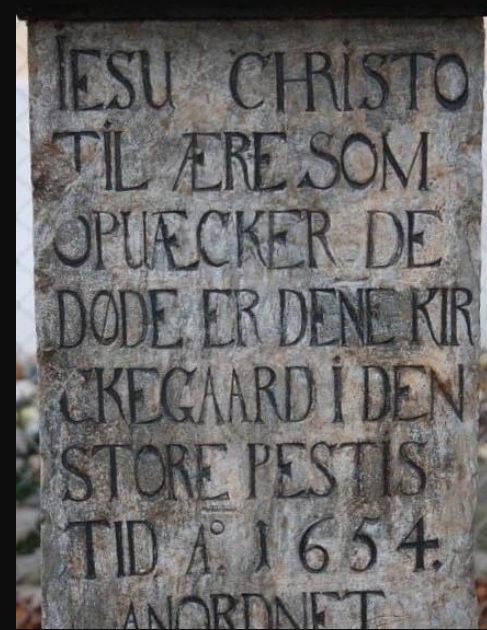 IESU CHRISTO
TIL ÆRE SOM
OPUÆCKER DE
DØDE ER DENE KIR
CKEGAARD I DEN
STORE PESTIS
TID A° 1654.
ANORDNET